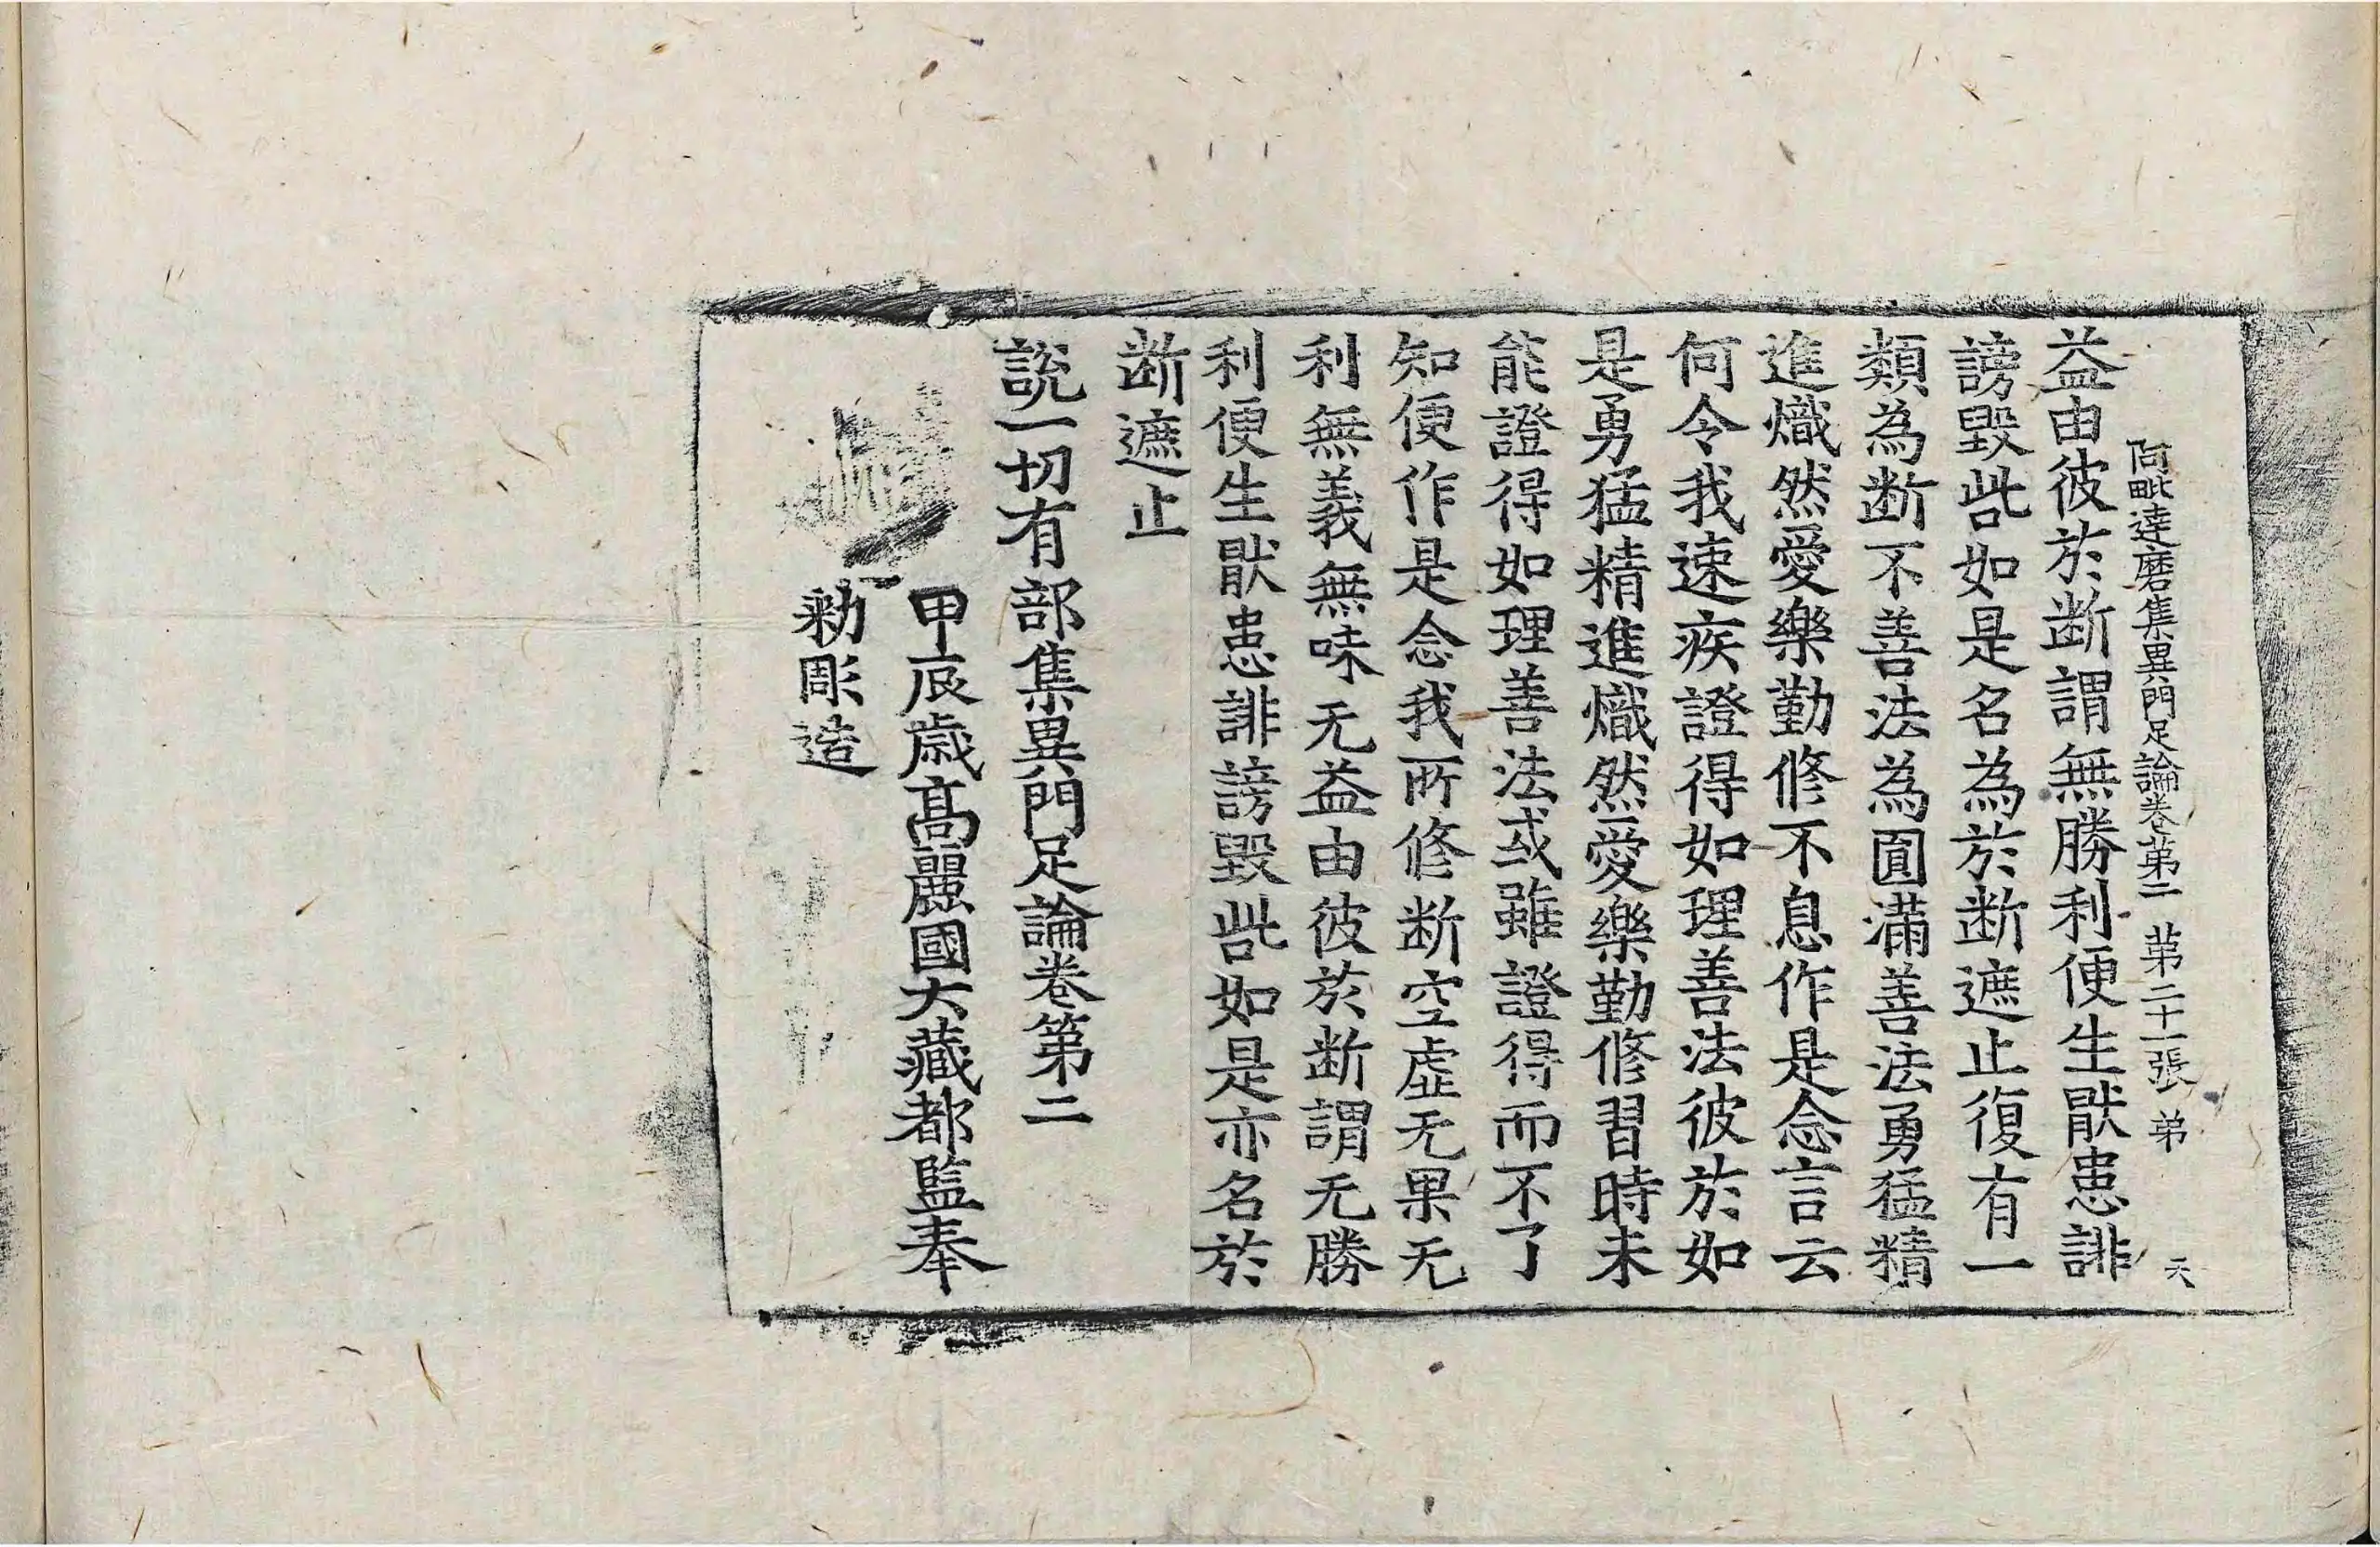 阿毗達磨集異門足論卷第二 第二十一張 弟 天
益由彼於断謂無勝利便生猒患誹
謗毀呰如是名為於断遮止復有一
類為断不善法為圓滿善法勇猛精
進熾然愛樂勤修不息作是念言云
何令我速疾證得如理善法彼於如
是勇猛精進熾然愛樂勤修習時未
能證得如理善法或雖證得而不了
知便作是念我所修断空虛无果无
利無義無味无益由彼於断謂无勝
利便生猒患誹謗毀呰如是亦名於
断遮止
說一切有部集異門足論卷第二
甲辰歲高麗國大藏都監奉
勑彫造